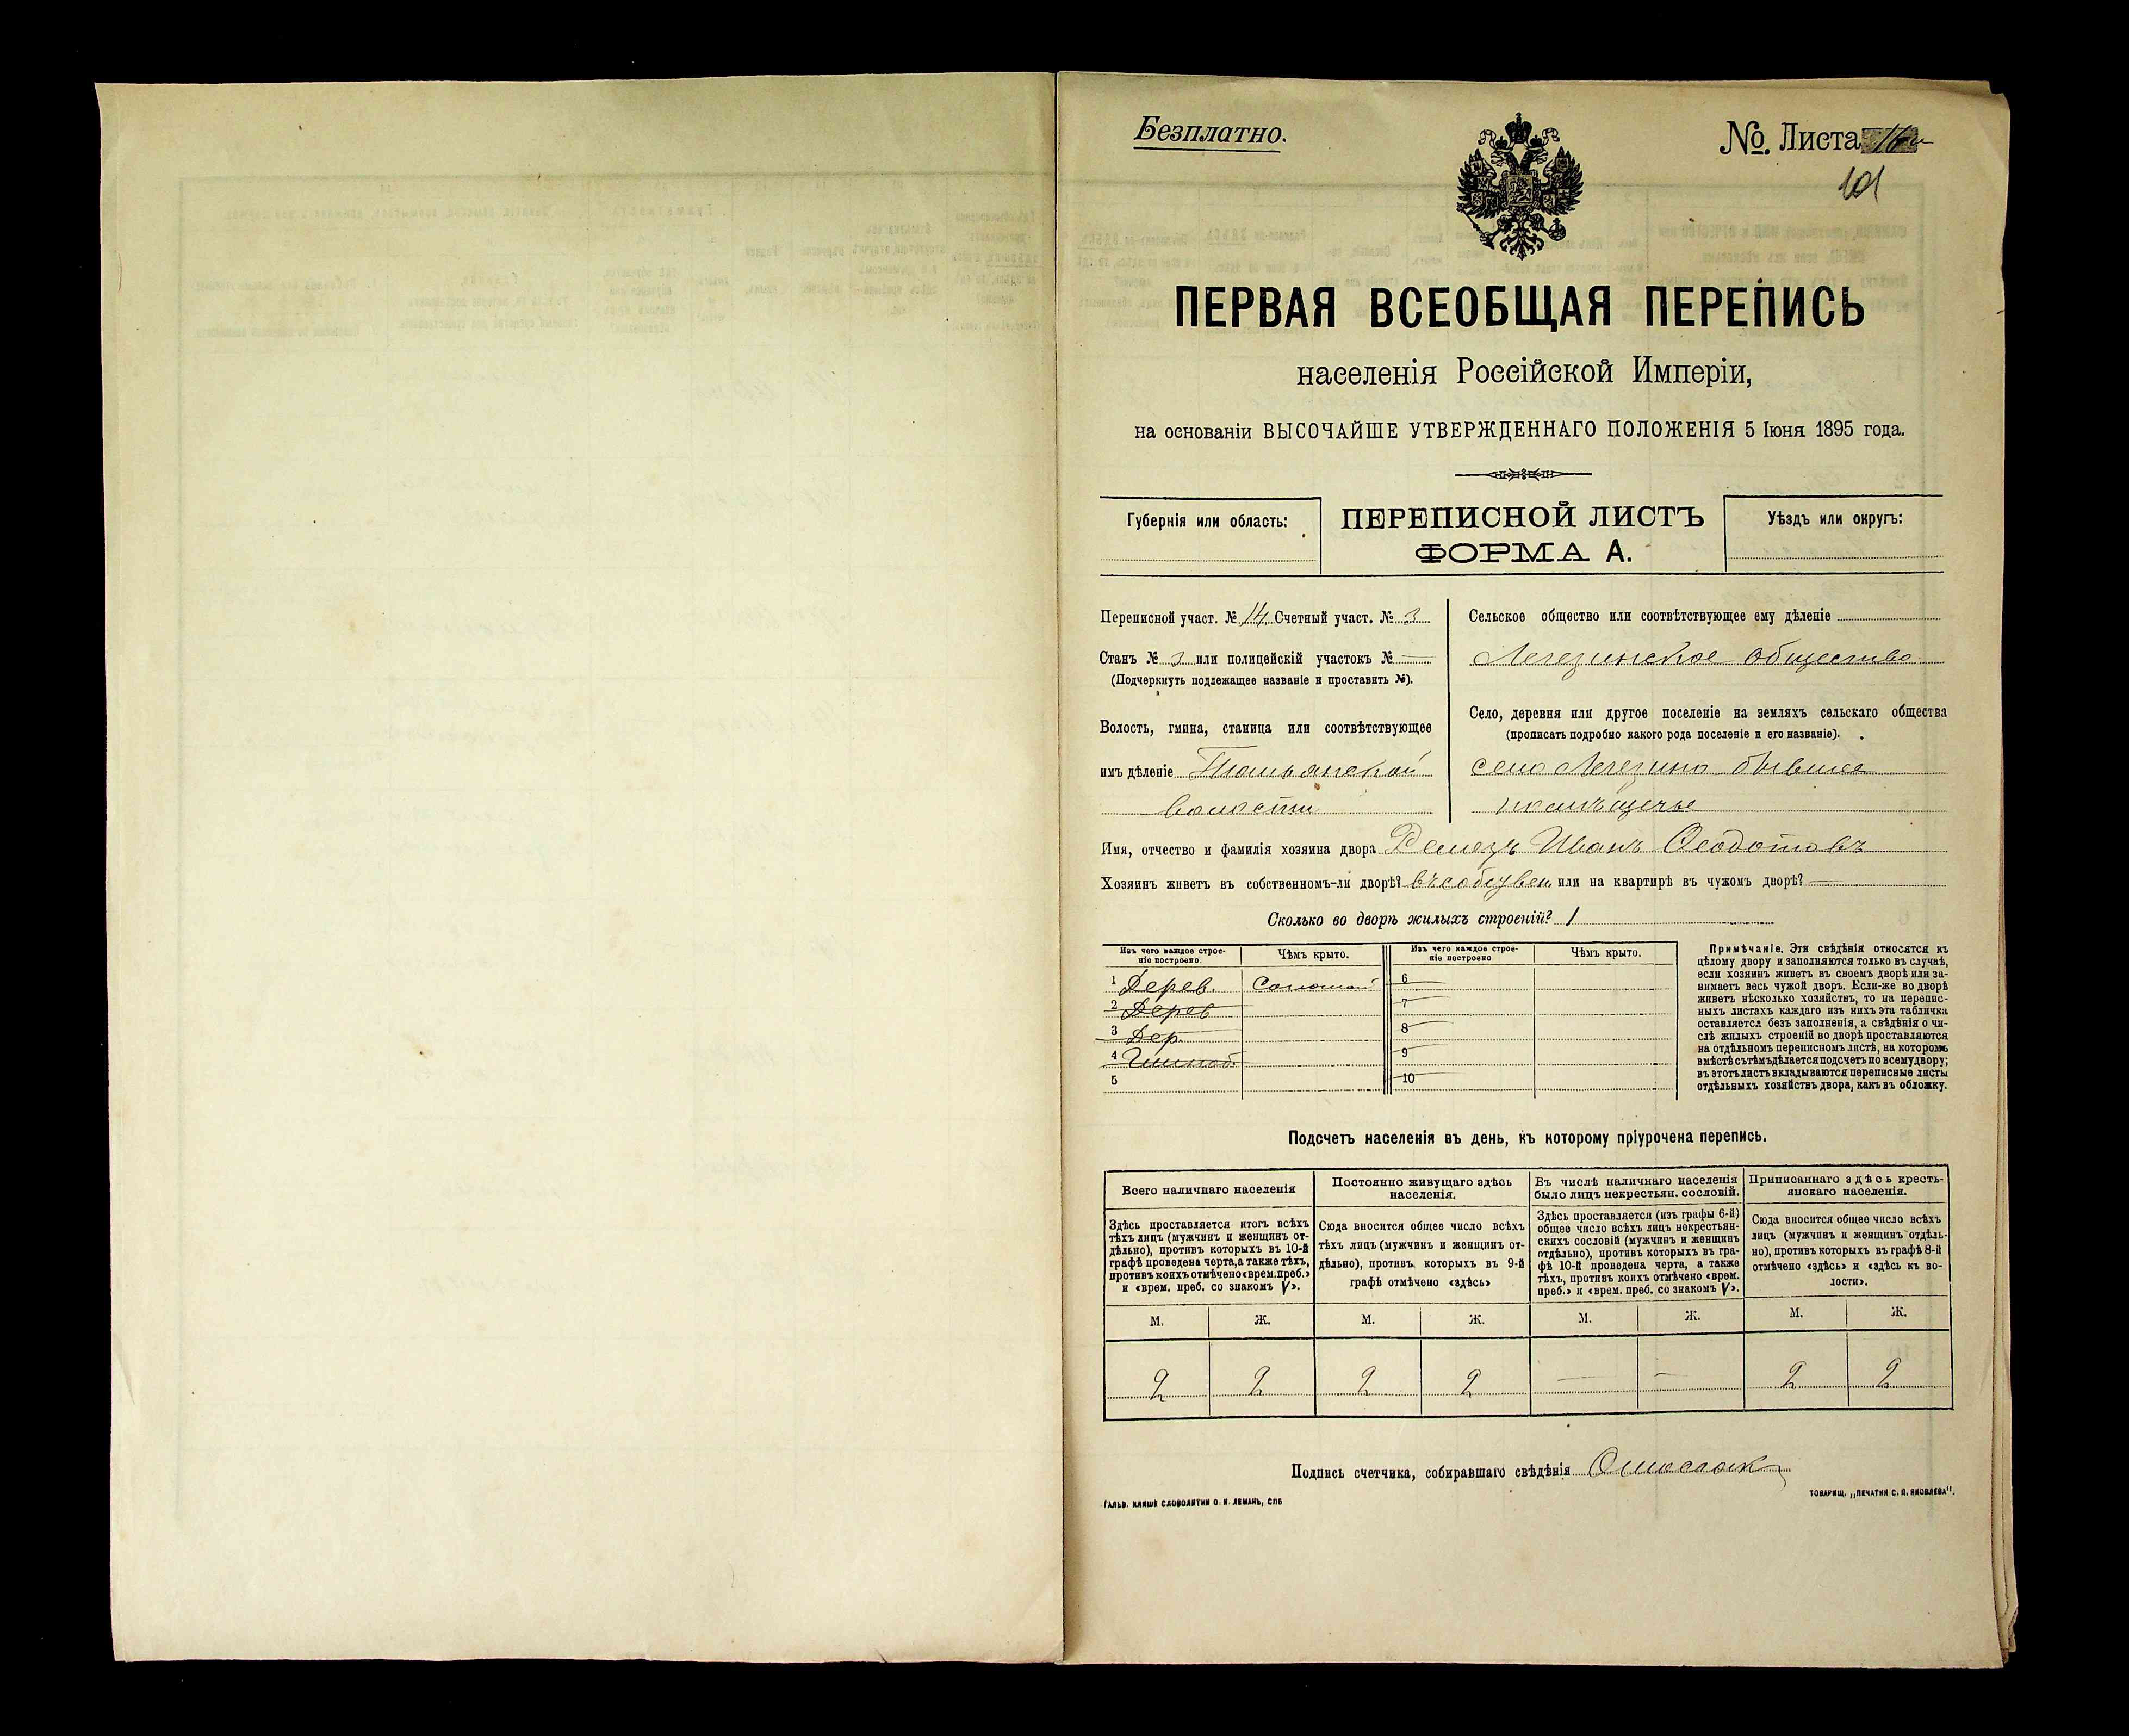 Безплатно.
№ Листа
101
ПЕРВАЯ ВСЕОБЩАЯ ПЕРЕПИСЬ
населенія Россійской Имперіи,
на основаніи ВЫСОЧАЙШЕ УТВЕРЖДЕННАГО ПОЛОЖЕНІЯ 5 Іюня 1895 года.
Губернія или область:
ПЕРЕПИСНОЙ ЛИСТЪ
ФОРМА А.
Уѣздъ или округъ:
Переписной участ. № 14. Счетный участ. № 3
Станъ № 3 или полицейскій участокъ № —
(Подчеркнуть подлежащее названіе и проставить №).
Волость, гмина, станица или соотвѣтствующее
имъ дѣленіе Тальянской
волости
Сельское общество или соотвѣтствующее ему дѣленіе
Легезинское общество
Село, деревня или другое поселеніе на земляхъ сельскаго общества
(прописать подробно какого рода поселеніе и его названіе).
село Легезино бывшее
помѣщичье
Имя, отчество и фамилія хозяина двора Ремезъ Иванъ Ѳеодотовъ
Хозяинъ живетъ въ собственномъ-ли дворѣ? въ собствен. или на квартирѣ въ чужомъ дворѣ? —
Сколько во дворѣ жилыхъ строеній? 1
Изъ чего каждое строе-
ніе построено.
Чѣмъ крыто.
Изъ чего каждое строе-
ніе построено
Чѣмъ крыто.
1 Дерев. Соломой 6
2 Дерев 7
3 Дер. 8
4 9
5 10
Примѣчаніе. Эти свѣдѣнія относятся къ
цѣлому двору и заполняются только въ случаѣ,
если хозяинъ живетъ въ своемъ дворѣ или за-
нимаетъ весь чужой дворъ. Если-же во дворѣ
живетъ нѣсколько хозяйствъ, то на перепис-
ныхъ листахъ каждаго изъ нихъ эта табличка
оставляется безъ заполненія, а свѣдѣнія о чи-
слѣ жилыхъ строеній во дворѣ проставляются
на отдѣльномъ переписномъ листѣ, на которомъ
вмѣстѣ съ тѣмъ дѣлается подсчетъ по всему двору;
въ этотъ листъ вкладываются переписные листы
отдѣльныхъ хозяйствъ двора, какъ въ обложку.
Подсчетъ населенія въ день, къ которому пріурочена перепись.
Всего наличнаго населенія
Здѣсь проставляется итогъ всѣхъ
тѣхъ лицъ (мужчинъ и женщинъ от-
дѣльно), противъ которыхъ въ 10-й
графѣ проведена черта, а также тѣхъ,
противъ коихъ отмѣчено «врем. преб.»
и «врем. преб. со знакомъ V».
Постоянно живущаго здѣсь
населенія.
Сюда вносится общее число всѣхъ
тѣхъ лицъ (мужчинъ и женщинъ от-
дѣльно), противъ которыхъ въ 9-й
графѣ отмѣчено «здѣсь»
Въ числѣ наличнаго населенія
было лицъ некрестьян. сословій.
Здѣсь проставляется (изъ графы 6-й)
общее число всѣхъ лицъ некрестьян-
скихъ сословій (мужчинъ и женщинъ
отдѣльно), противъ которыхъ въ гра-
фѣ 10-й проведена черта, а также
тѣхъ, противъ коихъ отмѣчено «врем.
преб.» и «врем. преб. со знакомъ V».
Приписаннаго здѣсь кресть-
янскаго населенія.
Сюда вносится общее число всѣхъ
лицъ (мужчинъ и женщинъ отдѣль-
но), противъ которыхъ въ графѣ 8-й
отмѣчено «здѣсь» и «здѣсь къ во-
лости».
М. Ж. М. Ж. М. Ж. М. Ж.
2 2 2 2 — — 2 2
Подпись счетчика, собиравшаго свѣдѣнія
ГАЛЬВ. КЛИШЕ СЛОВОЛИТНИ О. И. ЛЕМАНЪ, СПБ
ТОВАРИЩ. „ПЕЧАТНЯ С. П. ЯКОВЛЕВА".